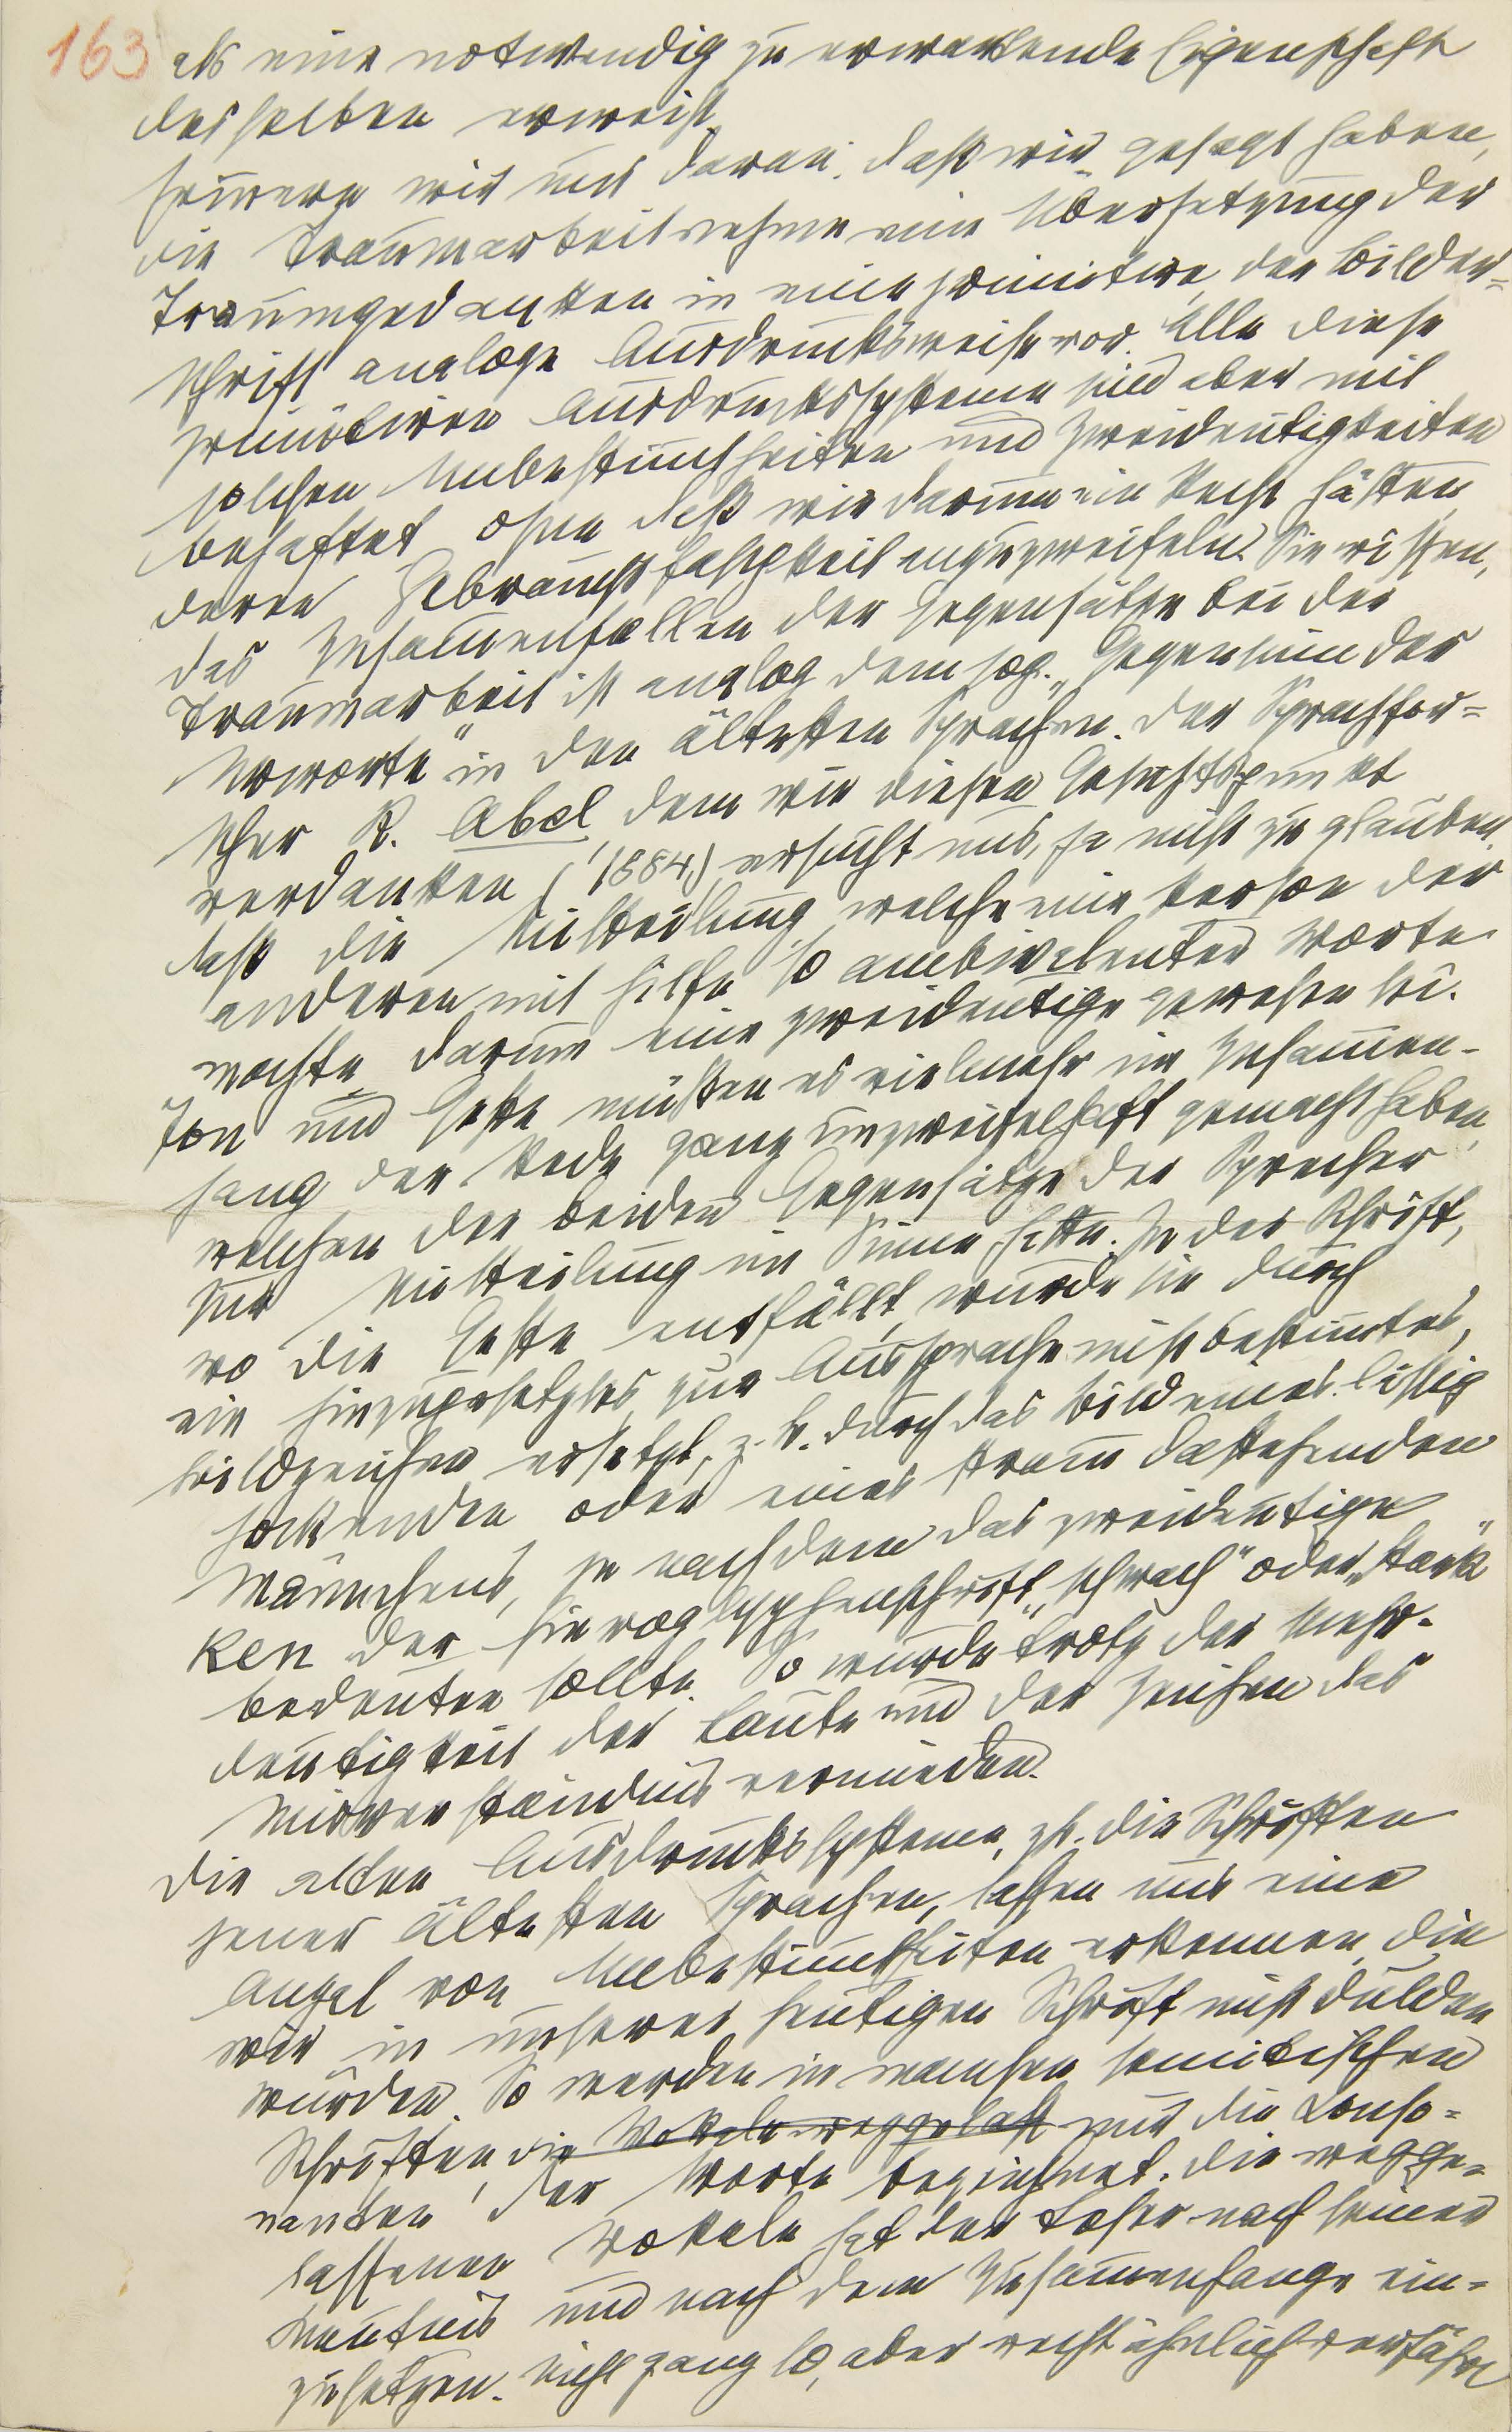 163 als eine notwendig zu erwartende Eigenschaft
desselben erweist.
Erinnern wir uns daran, daß wir gesagt haben,
die Traumarbeit nehme eine Übersetzung der
Traumgedanken in eine primitive, der Bilder=
schrift analoge Ausdrucksweise vor. Alle diese
primitiven Ausdruckssysteme sind aber mit
solchen Unbestimtheiten und Zweideutigkeiten
behaftet, ohne daß wir darum ein Recht hätten,
deren Gebrauchsfähigkeit anzuzweifeln. Sie wissen,
das Zusamenfallen der Gegensätze bei der
Traumarbeit ist analog dem sog. „Gegensinn der
Urworte" in den ältesten Sprachen. Der Sprachfor=
scher K. Abel, dem wir diesen Gesichtspunkt
verdanken (1884), ersucht uns, ja nicht zu glauben,
daß die Mitteilung, welche eine Person der
anderen mit Hilfe so ambivalenter Worte
machte, darum eine zweideutige gewesen sei.
Ton und Geste müssen es vielmehr im Zusamen-
hang der Rede ganz unzweifelhaft gemacht haben,
welchen der beiden Gegensätze der Sprecher
zur Mitteilung im Sinne hatte. In der Schrift,
wo die Geste entfällt, wurde sie durch
ein hinzugesetztes, zur Aussprache nicht bestimtes,
Bildzeichen ersetzt, z. B. durch das Bild eines lässig
hockenden oder eines stram dastehenden
Mäннchens, je nachdem das zweideutige
ken der Hieroglyphenschrift „schwach" oder „stark"
bedeuten sollte. So wurde trotz der Mehr-
deutigkeit der Laute und der Zeichen das
Misverständnis vermieden.
Die alten Ausdruckssysteme, z.B. die Schriften
jener ältesten Sprachen, lassen uns eine
Anzal von Unbestimtheiten erkennen, die
wir in unserer heutigen Schrift nicht dulden
würden. So werden in manchen semitischen
Schriften die Vokale weggelaß nur die Conso=
nanten der Worte bezeichnet. Die wegge=
lassenen Vokale hat der Leser nach seiner
Kenntnis und nach dem Zusamenhange ein=
zusetzen. Nicht ganz so, aber recht ähnlich verfährt